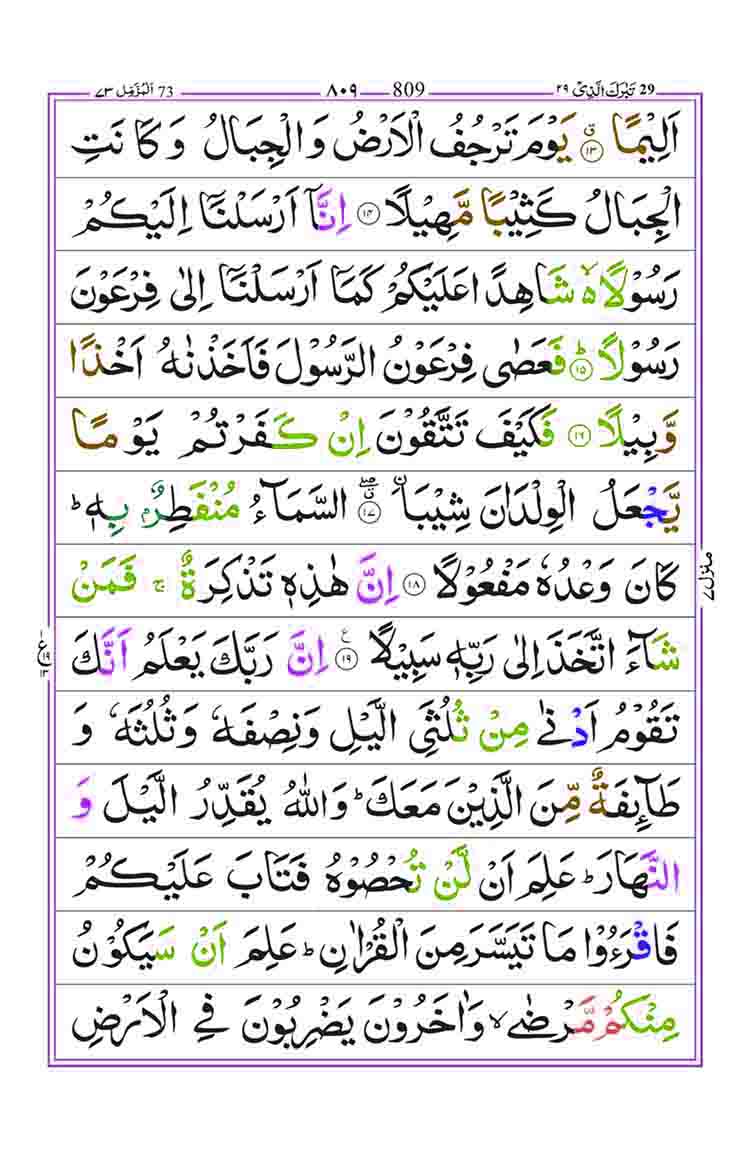 29 تَبٰرَكَ الَّذِیْ ٢٩ 809 ٨٠٩ 73 اَلْمُزَّمِّل ٧٣
اَلِیْمًا ۝۱۳ۗ یَوْمَ تَرْجُفُ الْاَرْضُ وَالْجِبَالُ وَكَانَتِ
الْجِبَالُ كَثِیْبًا مَّهِیْلًا ۝۱۴ اِنَّاۤ اَرْسَلْنَاۤ اِلَیْكُمْ
رَسُوْلًا ۙ۬ شَاهِدًا عَلَیْكُمْ كَمَاۤ اَرْسَلْنَاۤ اِلٰی فِرْعَوْنَ
رَسُوْلًا ؕ۝۱۵ فَعَصٰی فِرْعَوْنُ الرَّسُوْلَ فَاَخَذْنٰهُ اَخْذًا
وَّبِیْلًا ۝۱۶ فَكَیْفَ تَتَّقُوْنَ اِنْ كَفَرْتُمْ یَوْمًا
یَّجْعَلُ الْوِلْدَانَ شِیْبَا ۝۱۷ۗۖ السَّمَآءُ مُنْفَطِرٌۢ بِهٖ ؕ
كَانَ وَعْدُهٗ مَفْعُوْلًا ۝۱۸ اِنَّ هٰذِهٖ تَذْكِرَةٌ ۚ فَمَنْ
شَآءَ اتَّخَذَ اِلٰی رَبِّهٖ سَبِیْلًا ۝۱۹ ع اِنَّ رَبَّكَ یَعْلَمُ اَنَّكَ
تَقُوْمُ اَدْنٰی مِنْ ثُلُثَیِ الَّیْلِ وَنِصْفَهٗ وَثُلُثَهٗ وَ
طَآىِٕفَةٌ مِّنَ الَّذِیْنَ مَعَكَ ؕ وَاللّٰهُ یُقَدِّرُ الَّیْلَ وَ
النَّهَارَ ؕ عَلِمَ اَنْ لَّنْ تُحْصُوْهُ فَتَابَ عَلَیْكُمْ
فَاقْرَءُوْا مَا تَیَسَّرَ مِنَ الْقُرْاٰنِ ؕ عَلِمَ اَنْ سَیَكُوْنُ
مِنْكُمْ مَّرْضٰی ۙ وَاٰخَرُوْنَ یَضْرِبُوْنَ فِی الْاَرْضِ
منزل ٧
ع ١٩